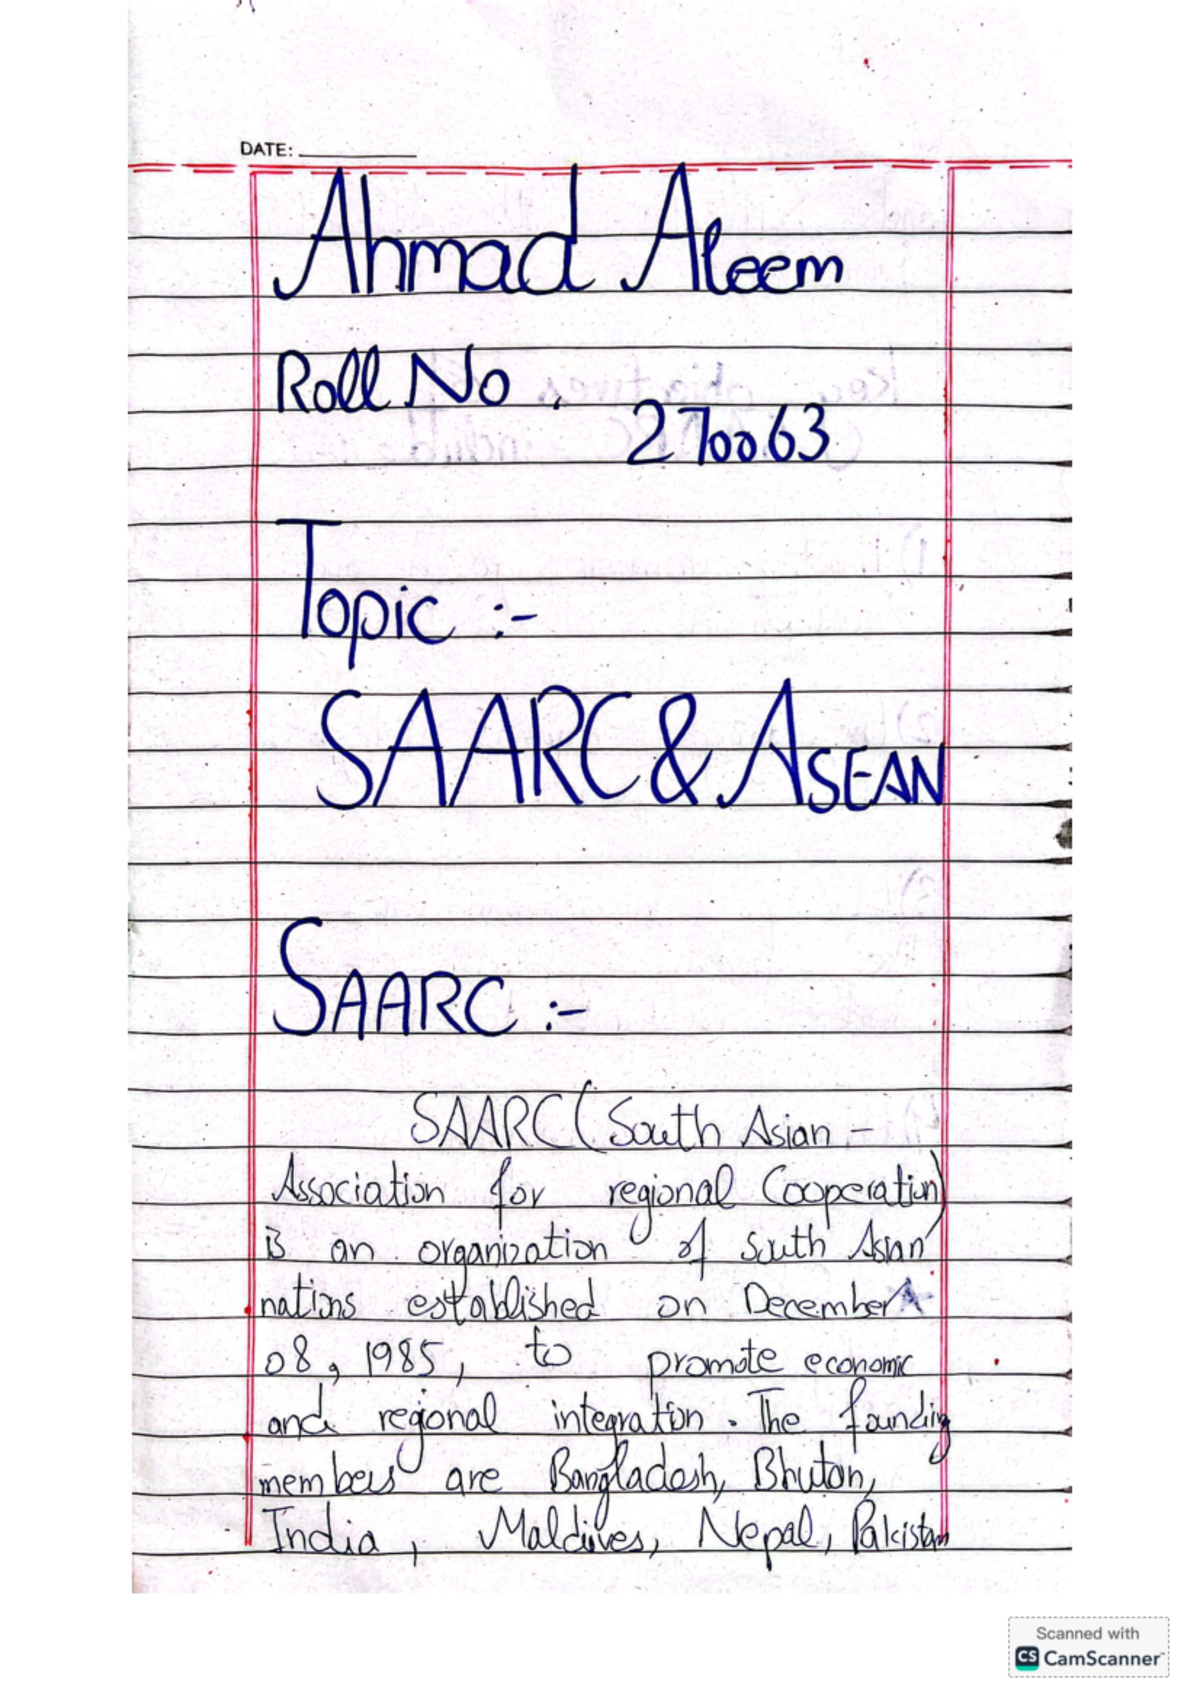 DATE:
Ahmad Aleem
Roll No.
270063
Topic :-
SAARC & ASEAN
SAARC :-
SAARC (South Asian -
Association for regional Cooperation)
is an organization of South Asian
nations established on December
08, 1985, to promote economic
and regional integration. The founding
members are Bangladesh, Bhutan,
India, Maldives, Nepal, Pakistan
Scanned with
CS CamScanner